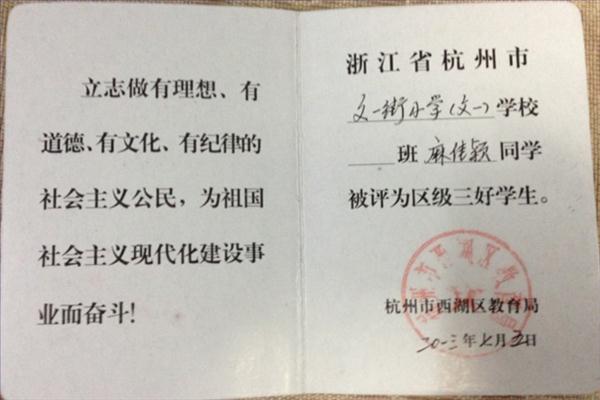 立志做有理想、有
道德、有文化、有纪律的
社会主义公民，为祖国
社会主义现代化建设事
业而奋斗！
浙江省杭州市
文一街小学(文一)学校
班 麻佳颖 同学
被评为区级三好学生。
杭州市西湖区教育局
二〇一三年七月五日